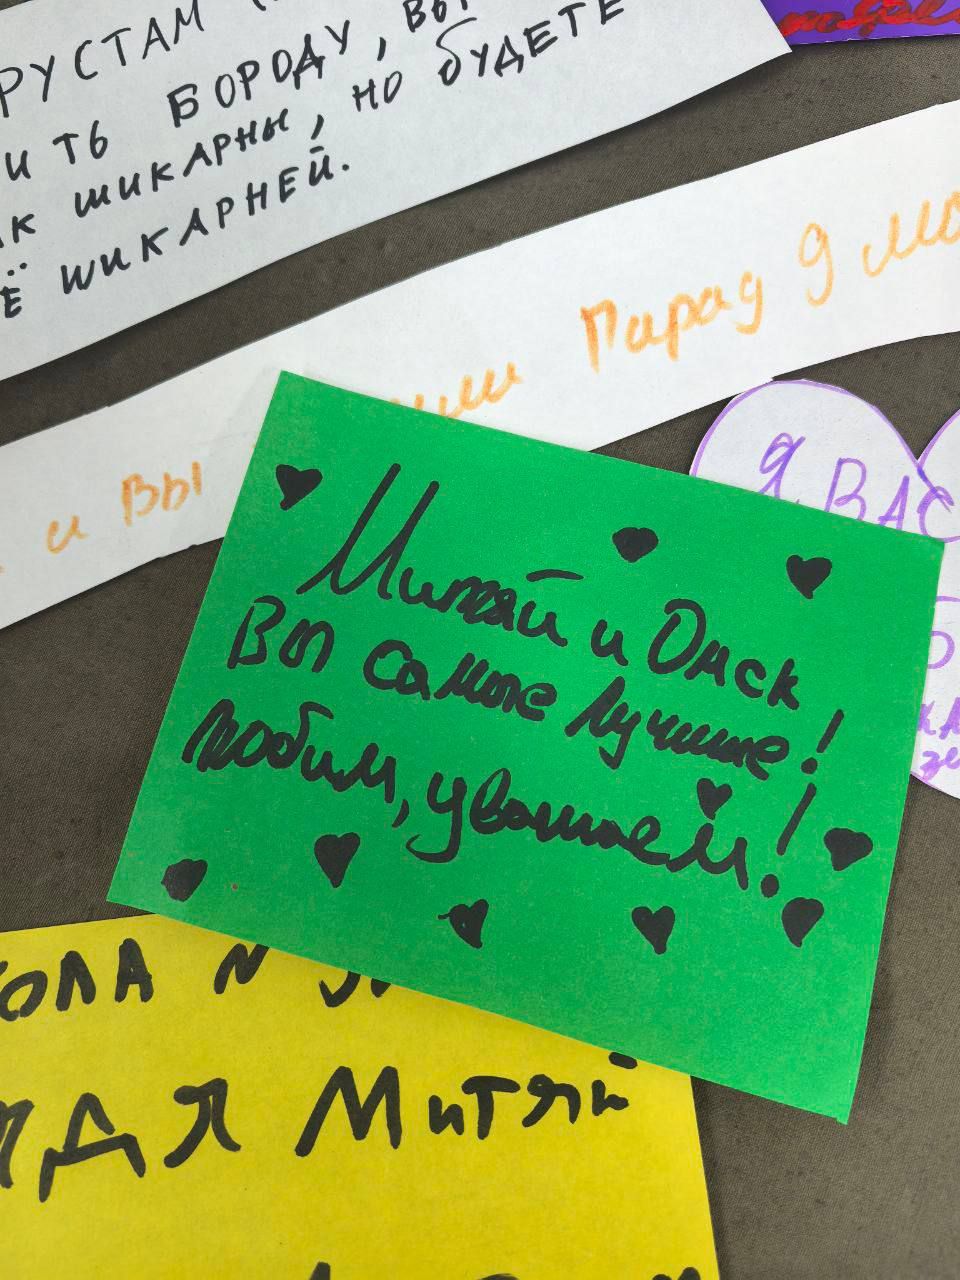 РУСТАМ
ИТЬ БОРОДУ, ВЫ
АК ШИКАРНЫ, НО БУДЕТЕ
Ё ШИКАРНЕЙ.
и ВЫ
Парад 9 мо
Я ВАС
Митяй и Омск
Вы самые лучшие!
Любим, уважаем!
КОЛА N
ДЯДЯ МИТЯЙ